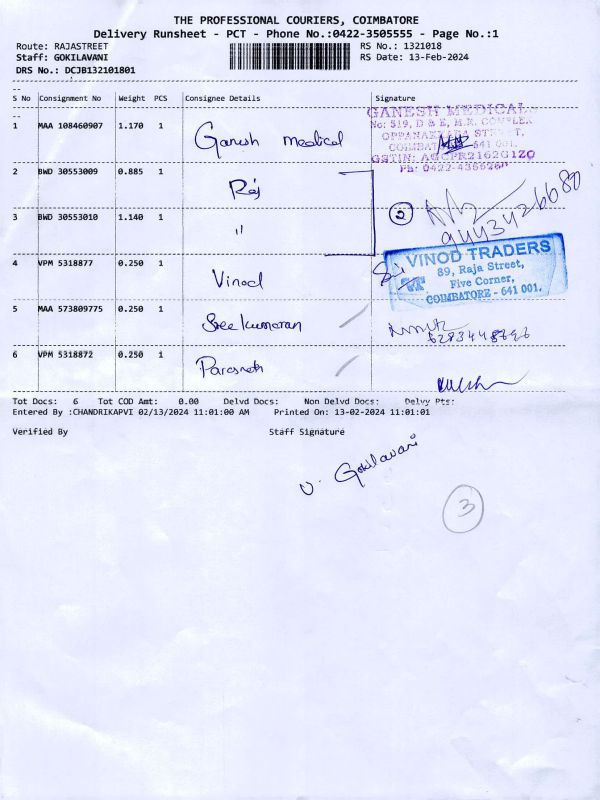 THE PROFESSIONAL COURIERS, COIMBATORE
Delivery Runsheet - PCT - Phone No.:0422-3505555 - Page No.:1
Route: RAJASTREET
RS No.: 1321018
Staff: GOKILAVANI
RS Date: 13-Feb-2024
DRS No.: DCJB132101801
S No Consignment No Weight PCS Consignee Details Signature
1 MAA 108460907 1.170 1 Ganesh medical
GANESH MEDICAL
No: 519, D & E, M.K. COMPLEX
STREET,
641 001.
Ph: 0422-
2 BWD 30553009 0.885 1 Raj
3 BWD 30553010 1.140 1 "
2
9443426680
4 VPM 5318877 0.250 1 Vinod
VINOD TRADERS
89, Raja Street,
Five Corner,
COIMBATORE - 641 001.
5 MAA 573809775 0.250 1 Sree kumaran
6 VPM 5318872 0.250 1
Tot Docs: 6 Tot COD Amt: 0.00 Delvd Docs: Non Delvd Docs: Delvy Pts:
Entered By :CHANDRIKAPVI 02/13/2024 11:01:00 AM Printed On: 13-02-2024 11:01:01
Verified By Staff Signature
V. Gokilavani
3